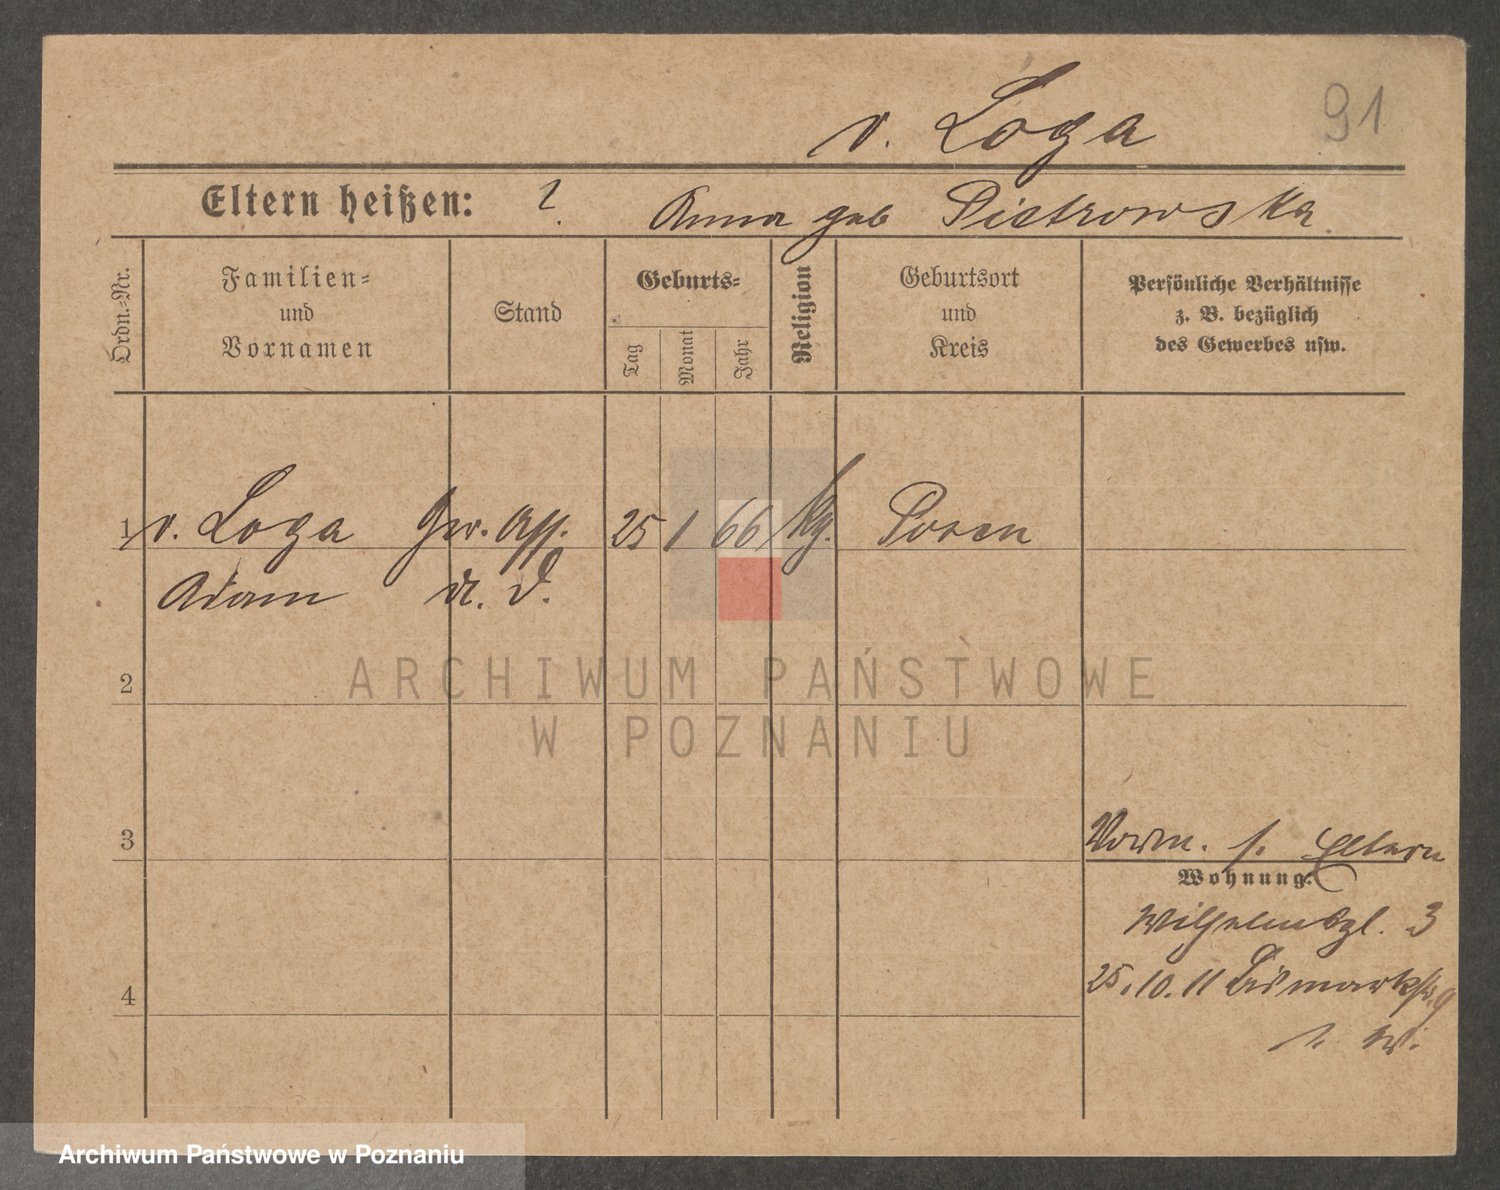 91
v. Loga
Eltern heißen: ? Anna geb Pietrowska.
Ordn.=Nr.
Familien=
und
Vornamen
Stand
Geburts=
Tag
Monat
Jahr
Religion
Geburtsort
und
Kreis
Persönliche Verhältnisse
z. B. bezüglich
des Gewerbes usw.
1 v. Loga Ger. Ass. 25 1 66 Posen
Adam a. D.
ARCHIWUM PAŃSTWOWE
W POZNANIU
2
3
4
Vorm. s. Eltern
Wohnung:
Wilhelmspl. 3
25.10.11 Bismarckstr. 9
s. W.
Archiwum Państwowe w Poznaniu